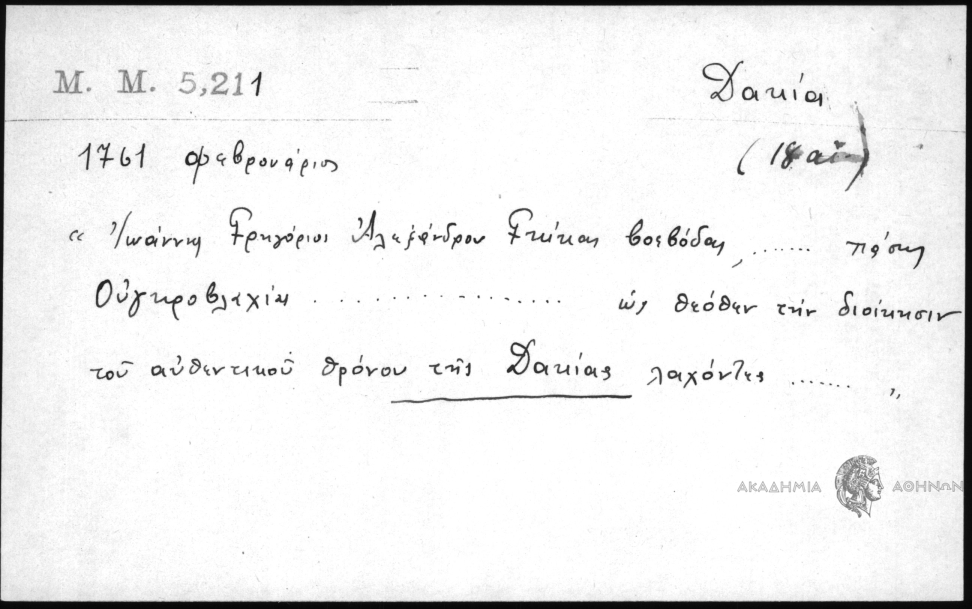 M. M. 5,211
Δακία
1761 Φεβρουάριος
(18 αἰ.)
" Ἰωάννης Γρηγόριος Ἀλεξάνδρου Γκίκας βοεβόδας, ...... πάσης
Οὐγκροβλαχίας .................. ὡς θεόθεν τὴν διοίκησιν
τοῦ αὐθεντικοῦ θρόνου τῆς Δακίας λαχόντες ....... "
ΑΚΑΔΗΜΙΑ ΑΘΗΝΩΝ